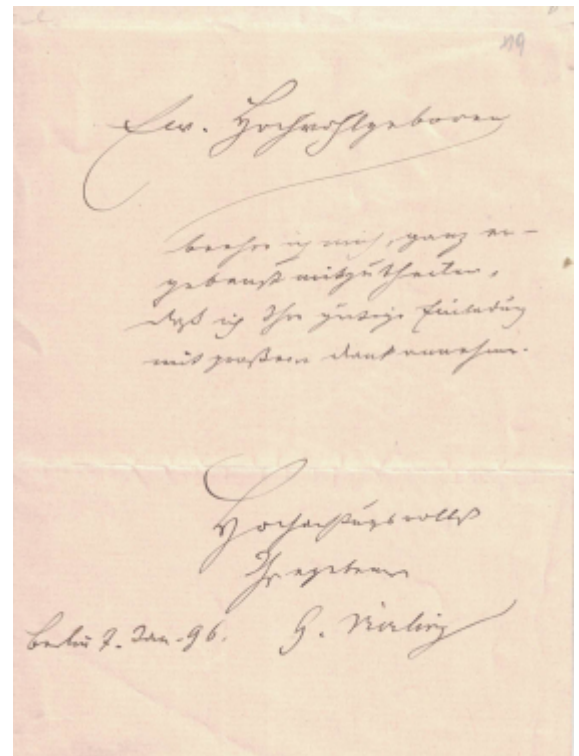 119
Ew. Hochwohlgeboren
beehre ich mich, ganz er-
gebenst mitzutheilen,
daß ich Ihre gütige Einladung
mit großem Dank annehme.
Hochachtungsvollst
Ihr ergebener
Berlin 7. Jan. 96. G. Vierling